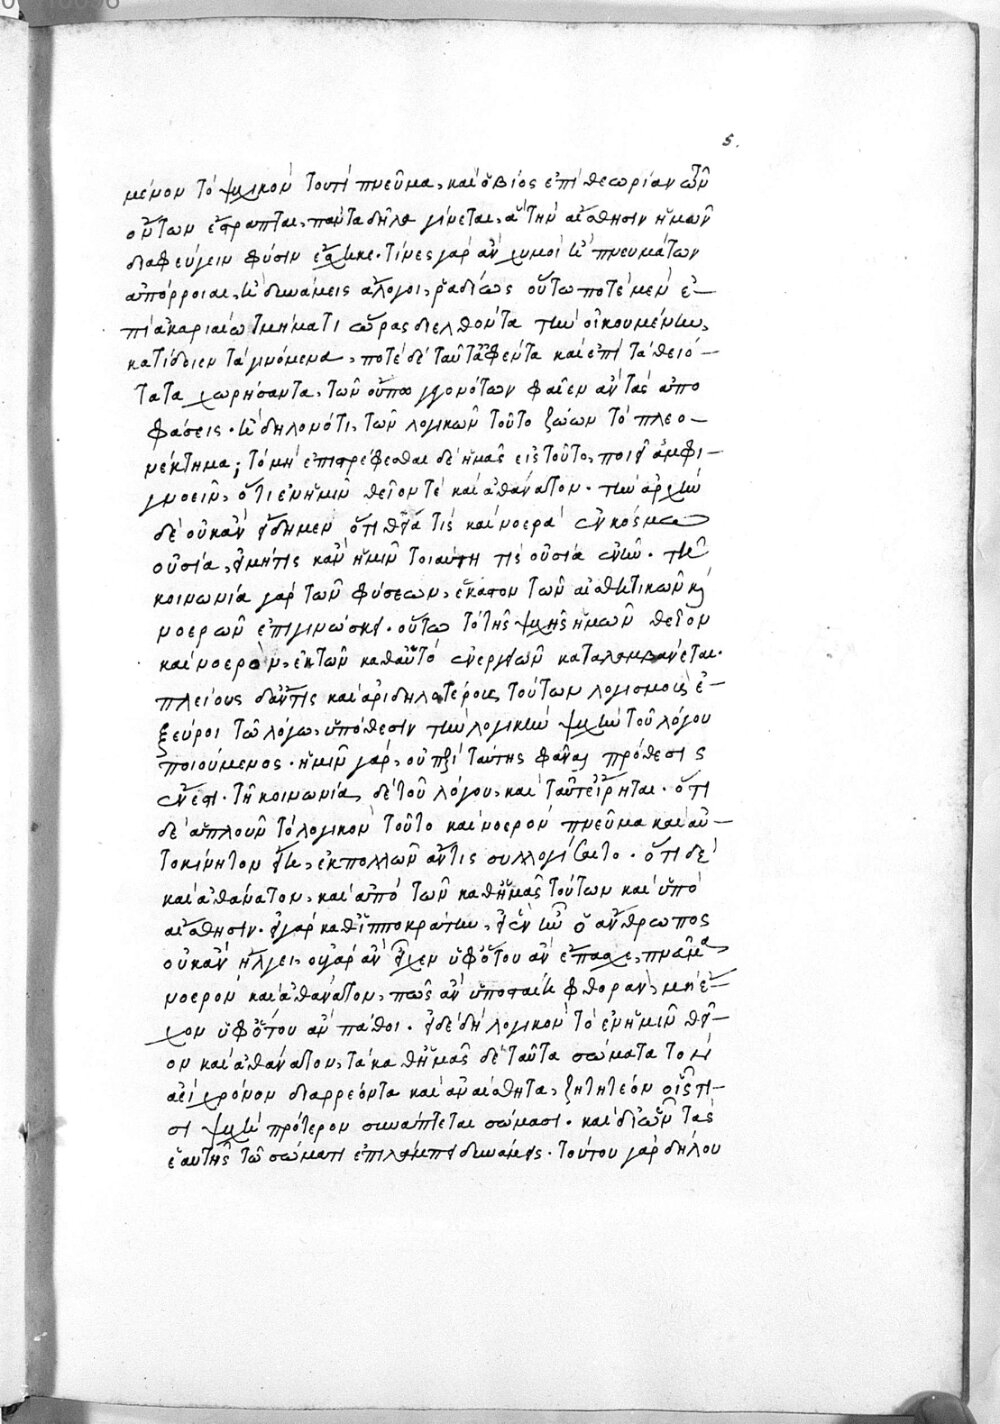 5.
μένον τὸ ψυχικὸν τουτὶ πνεῦμα, καὶ ὁ βίος ἐπὶ θεωρίαν τῶν
ὄντων ἐτράπται, πάντα δῆλα γίνεται, ἃ τὴν αἴσθησιν ἡμῶν
διαφεύγειν φύσιν ἔσχηκε. τίνες γὰρ ἂν χυμοὶ καὶ πνευμάτων
ἀπόρροιαι, καὶ δυνάμεις ἄλογοι, ῥαδίως οὕτω ποτὲ μὲν ἐ–
πὶ ἀκαριαίω τμήματι ὥρας διελθόντα τὴν οἰκουμένην,
κατίδοιεν τὰ γινόμενα, ποτὲ δὲ ταῦτ' ἀφέντα καὶ ἐπὶ τὰ θειό–
τατα χωρήσαντα, τῶν οὔπω γεγονότων φαῖεν ἂν τὰς ἀπο
φάσεις. καὶ δηλονότι, τῶν λογικῶν τοῦτο ζώων τὸ πλεο–
νέκτημα; τὸ μὴ ἐπιστρέφεσθαι δὲ ἡμᾶς εἰς τοῦτο, ποιεῖ ἀμφι–
γνοεῖν, ὅτι ἐν ἡμῖν θεῖόν τε καὶ ἀθάνατον. τὴν ἀρχὴν
δὲ οὐκ ἂν ᾔδημεν ὅτι θεία τίς καὶ νοερὰ ἐν κόσμω
οὐσία, εἰ μήτις κἂν ἡμῖν τοιαύτη τίς οὐσία ἐνῆν. τῆ
κοινωνία γὰρ τῶν φύσεων, ἕκαστον τῶν αἰσθητικῶν καὶ
νοερῶν ἐπιγινώσκει. οὕτω τὸ τῆς ψυχῆς ἡμῶν θεῖον
καὶ νοερὸν, ἐκ τῶν καθ' αὑτὸ ἐνεργειῶν καταλαμβάνεται.
πλείους δ' ἄν τις καὶ ἀριδηλοτέρους τούτων λογισμοὺς ἐ–
ξεύροι τῶ λόγω, ὑπόθεσιν τὴν λογικὴν ψυχὴν τοῦ λόγου
ποιούμενος. ἡμῖν γὰρ, οὐ περὶ ταύτης φᾶναι πρόθεσις
ἔνεστι. τῆ κοινωνία, δὲ τοῦ λόγου, καὶ ταῦτ' εἴρηται. ὅτι
δὲ ἁπλοῦν τὸ λογικὸν τοῦτο καὶ νοερὸν πνεῦμα καὶ αὐ–
τοκίνητον εἴη, ἐκ πολλῶν ἄν τις συλλογίσαιτο. ὅτι δὲ
καὶ ἀθάνατον, καὶ ἀπὸ τῶν καθ' ἡμᾶς τούτων καὶ ὑπὸ
αἴσθησιν. εἰ γὰρ καθ' ἱπποκράτην, εἰ ἓν ἦν ὁ ἄνθρωπος
οὐκ ἂν ἤλγει, οὐ γὰρ ἂν εἶχεν ὑφ' ὅτου ἂν ἔπασχε, πνεῦμα
νοερὸν καὶ ἀθάνατον, πῶς ἂν ὑποσταίη φθορὰν, μὴ ἔ–
χον ὑφ' ὅτου ἂν πάθοι. εἰ δὲ δὴ λογικὸν τὸ ἐν ἡμῖν θεῖ–
ον καὶ ἀθάνατον, τὰ καθ' ἡμᾶς δὲ ταῦτα σώματα τὸν
ἀεὶ χρόνον διαρρέοντα καὶ ἀναίσθητα, ζητητέον οἷς τι–
σι ψυχὴ πρότερον συνάπτεται σώμασι. καὶ δι' ὧν τὰς
ἑαυτῆς τῶ σώματι ἐπιλάμπει δυνάμεις. τούτου γὰρ δήλου